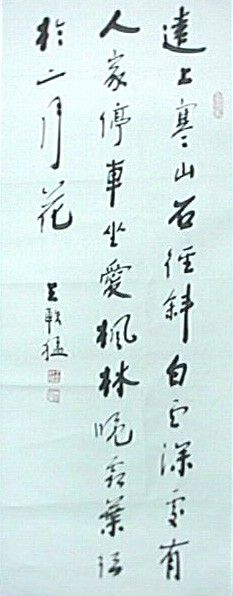 遠上寒山石徑斜白云深處有
人家停車坐愛楓林晚霜葉红
於二月花